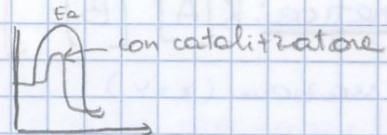 Ea
con catalizzatore